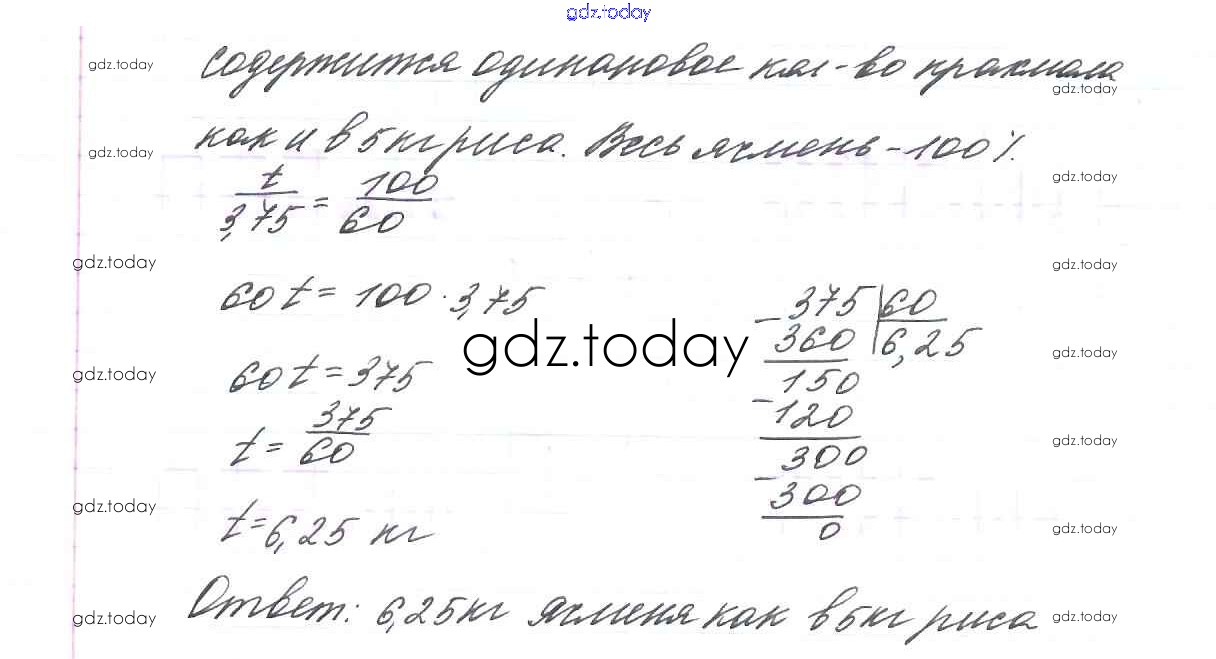 gdz.today
gdz.today содержится одинаковое кол-во крахмала gdz.today
gdz.today как и в 5 кг риса. Весь ячмень - 100 %. gdz.today
t/3,75 = 100/60
gdz.today gdz.today
60 t = 100 · 3,75
gdz.today
60 t = 375
t = 375/60
t = 6,25 кг
375 | 60
- 360 | 6,25
150
- 120
300
- 300
0
gdz.today gdz.today
gdz.today gdz.today
gdz.today gdz.today
Ответ: 6,25 кг ячменя как в 5 кг риса
gdz.today gdz.today